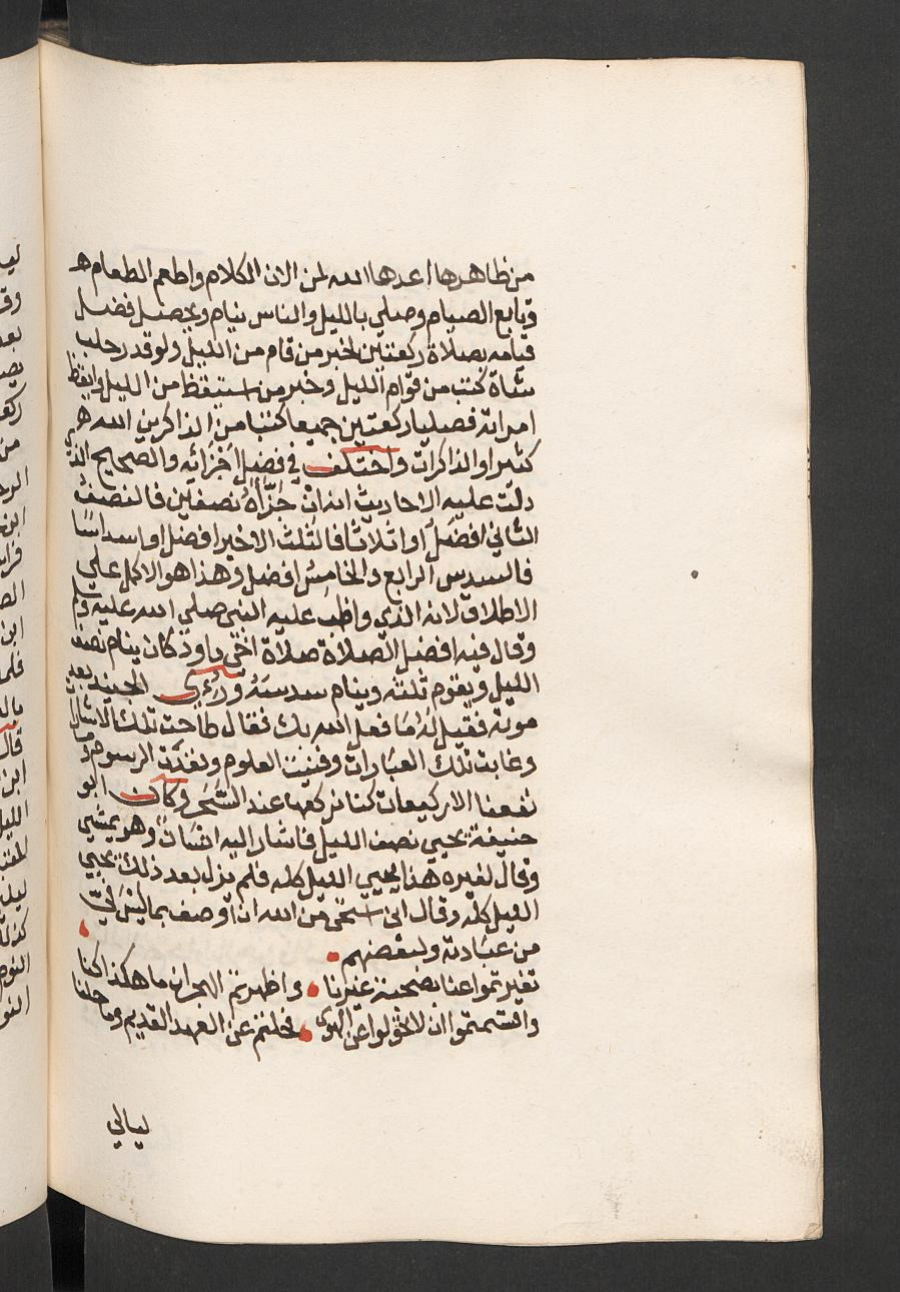 من ظاهرها اعدها الله لمن الان الكلام واطعم الطعام
وتابع الصيام وصلي بالليل والناس نيام ويحصل فضل
قيامه بصلاة ركعتين لخبر من قام من الليل ولو قدر حلب
شاة كتب من قوام الليل وخبر من استيقظ من الليل وايقظ
امراته فصليا ركعتين جميعا كتبا من الذاكرين الله
كثيرا والذاكرات واختلف في فضل اجزائه والصحيح الذي
دلت عليه الاحاديث انه ان جزأه نصفين فالنصف
الثاني افضل او اثلاثا فالثلث الاخير افضل او اسداسا
فالسدس الرابع والخامس افضل وهذا هو الاكمل علي
الاطلاق لانه الذي واظب عليه النبي صلي الله عليه وسلم
وقال فيه افضل الصلاة صلاة اخي داود كان ينام نصف
الليل ويقوم ثلثه وينام سدسه ورؤي الجنيد بعد
موته فقيل له ما فعل الله بك فقال طاحت تلك الاشارات
وغابت تلك العبارات وفنيت العلوم ونفدت الرسوم وما
نفعنا الا ركيعات كنا نركعها عند السحر وكان ابو
حنيفة يحيي نصف الليل فاشار اليه انسان وهو يمشي
وقال لغيره هذا يحيي الليل كله فلم يزل بعد ذلك يحيي
الليل كله وقال اني استحي من الله ان اوصف بما ليس في
من عبادته ولبعضهم
تغيرتموا عنا بصحبة غيرنا واظهرتم الهجران ما هكذا كنا
واقسمتموا ان لا تحولوا عن الهوي فحلتم عن العهد القديم وما حلنا
ليالي